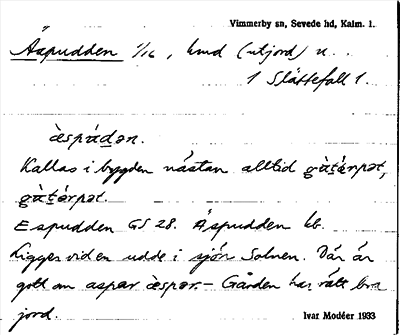 Vimmerby sn, Sevede hd, Kalm. l.
Äspudden 1/16, hmd (utjord) u.
1 Slättefall 1.
æ̀spúdən.
Kallas i bygden nästan alltid gàtárpət,
gàtórpət.
Espudden GS 28. Äspudden kb.
Ligger vid en udde i sjön Solnen. Där är
gott om aspar æ̀spər. – Gården har rätt bra
jord.
Ivar Modéer 1933